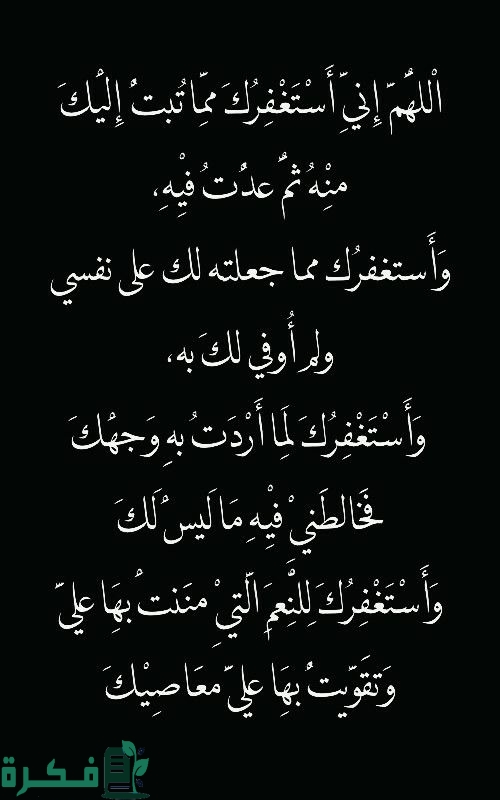 اللهُمّ إِنيّ أَسْتَغْفِرُكَ مِمّا تُبتُ إِليْكَ
مِنْهُ ثمُّ عدُتُ فِيْهِ،
وَأَستغفرُك مما جعلته لك على نفسي
ولم أُوفي لكَ به،
وَأَسْتَغْفِرُكَ لَمِا أَرْدَتُ بهِ وَجهْكَ
فَخَالطَنيْ فِيْهِ مَا لَيس ْلَكَ
وَأَسْتَغْفِرُكَ لِلنَّعِمَ الّتيِْ مننَتْ بهَِا عليّ
وَتقَوّيتُ بهَِا عليّ معَاصِيْكَ
فكرة